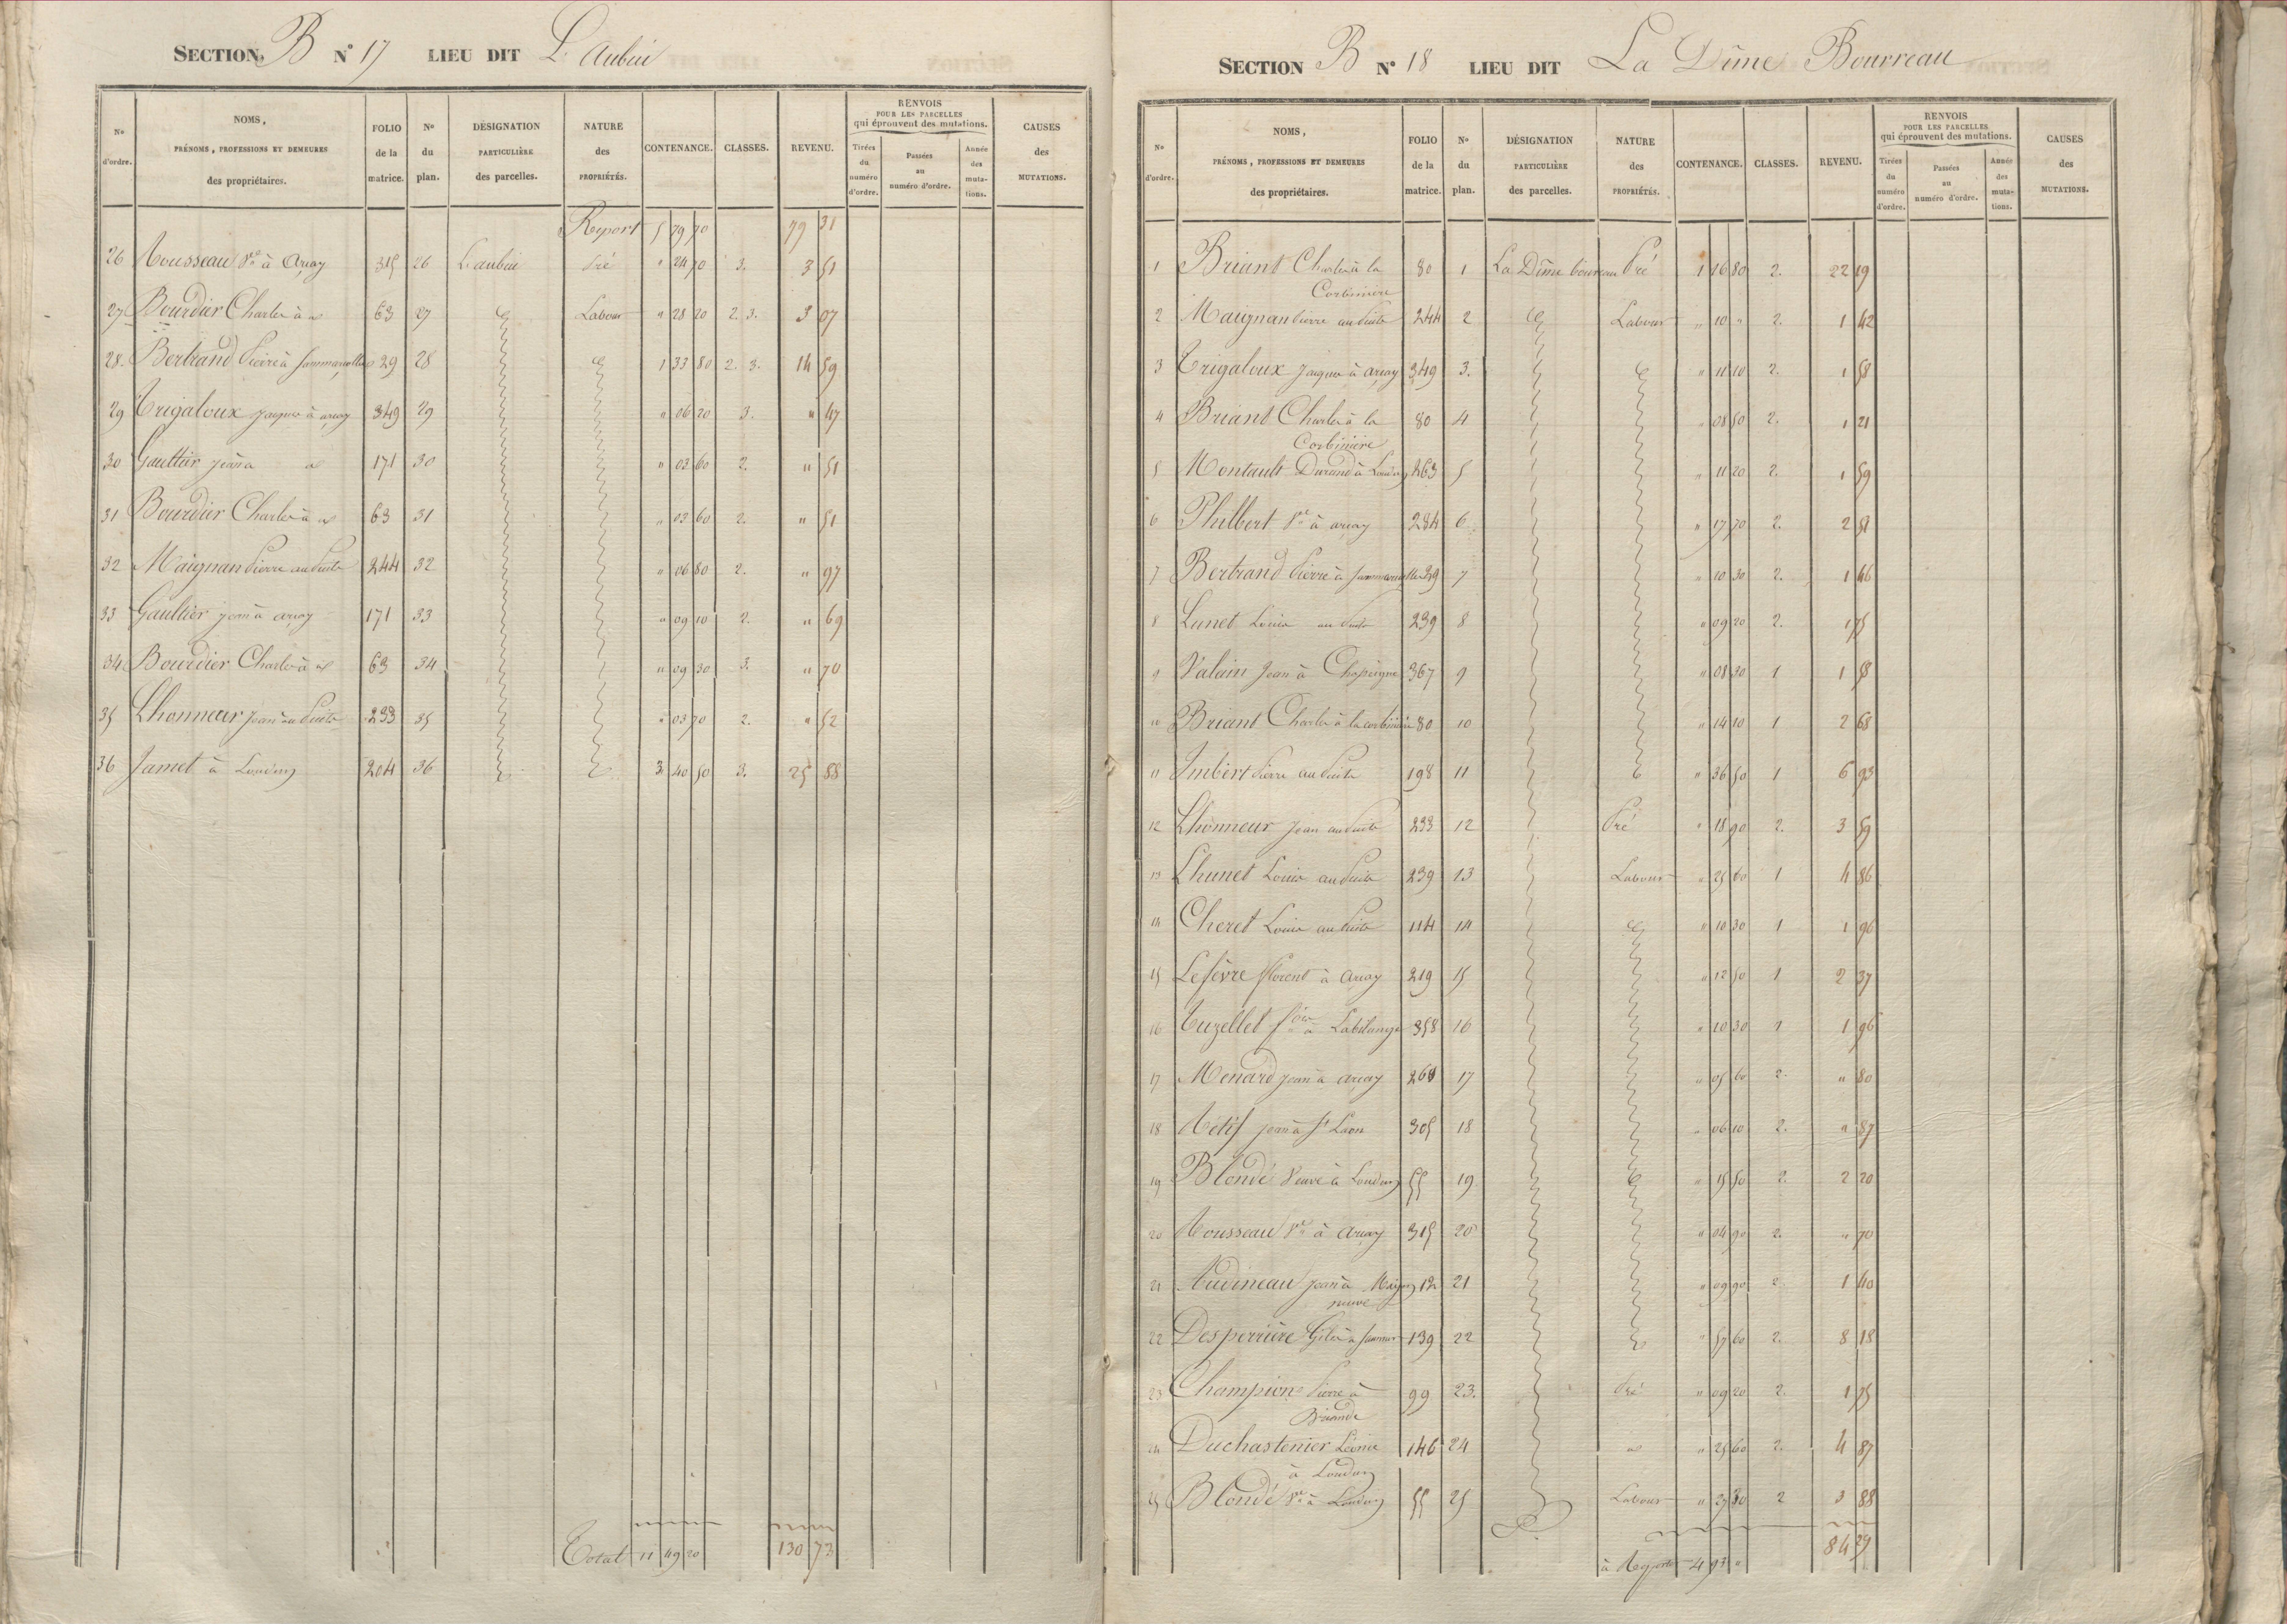 SECTION B N° 17 LIEU DIT L'Aubui
N° d'ordre. NOMS, PRÉNOMS, PROFESSIONS ET DEMEURES des propriétaires. FOLIO de la matrice. N° du plan. DÉSIGNATION PARTICULIÈRE des parcelles. NATURE des PROPRIÉTÉS. CONTENANCE. CLASSES. REVENU. RENVOIS POUR LES PARCELLES qui éprouvent des mutations. Tirées du numéro d'ordre. Passées au numéro d'ordre. Année des mutations. CAUSES des MUTATIONS.
Report 5 79 70 79 31
26 Rousseau Ve à Arçay 315 26 L'aubui Pré " 24 70 3. 3 51
27 Bourdier Charles à id 63 27 Labour " 28 20 2. 3. 3 07
28 Bertrand Pierre à Sammarcolles 29 28 1 33 80 2. 3. 14 59
29 Trigaloux Jacques à arçay 349 29 " 06 20 3. " 47
30 Gaultier Jean à id 171 30 " 03 60 2. " 51
31 Bourdier Charles à id 63 31 " 03 60 2. " 51
32 Maignan Pierre au Puits 244 32 " 06 80 2. " 97
33 Gaultier jean à arçay 171 33 " 09 10 2. " 69
34 Bourdier Charles à id 63 34 " 09 30 3. " 70
35 Lhonneur Jean au Puits 233 35 " 03 70 2. " 52
36 Jamet à Loudun 204 36 3 40 50 3. 25 88
Total 11 49 20 130 73
SECTION B N° 18 LIEU DIT La Dîme Bourreau
N° d'ordre. NOMS, PRÉNOMS, PROFESSIONS ET DEMEURES des propriétaires. FOLIO de la matrice. N° du plan. DÉSIGNATION PARTICULIÈRE des parcelles. NATURE des PROPRIÉTÉS. CONTENANCE. CLASSES. REVENU. RENVOIS POUR LES PARCELLES qui éprouvent des mutations. Tirées du numéro d'ordre. Passées au numéro d'ordre. Année des mutations. CAUSES des MUTATIONS.
1 Briant Charles à la 80 1 La Dîme boureau Pré 1 16 80 2. 22 19
Corbinière
2 Maignan Pierre au Puits 244 2 Labour " 10 " 2. 1 42
3 Trigaloux Jacques à arçay 349 3. " 11 10 2. 1 58
4 Briant Charles à la 80 4 " 08 50 2. 1 21
Corbinière
5 Montault Durand à Loudun 263 5 " 11 20 2. 1 59
6 Philbert Ve à arçay 284 6 " 17 70 2. 2 51
7 Bertrand Pierre à Sammarcolles 29 7 " 10 30 2. 1 46
8 Lunet Louis au Puits 239 8 " 09 20 2. 1 75
9 Valain Jean à Chasseigne 367 9 " 08 30 1 1 58
10 Briant Charles à la corbinière 80 10 " 14 10 1 2 68
11 Imbert Pierre au Puits 198 11 " 36 50 1 6 93
12 Lhonneur Jean au Puits 233 12 Pré " 18 90 2. 3 59
13 Lhunet Louis au Puits 239 13 Labour " 25 60 1 4 86
14 Cheret Louis au Puits 114 14 " 10 30 1 1 96
15 Lefèvre florent à Arçay 219 15 " 12 50 1 2 37
16 Tuzellet fçois à 358 16 " 10 30 1 1 96
17 Menard jean à arçay 260 17 " 05 60 2. " 80
18 Rétif jean à St Laon 305 18 " 06 10 2. " 87
19 Blondé Veuve à Loudun 55 19 " 15 50 2. 2 20
20 Rousseau Ve à Arçay 315 20 " 04 90 2. " 70
21 Audineau jean à Maison 12 21 " 09 90 2. 1 40
neuve
22 Desperrière Giles à Saumur 139 22 " 57 60 2. 8 18
23 Champion Pierre à 99 23. Pré " 09 20 2. 1 75
Briande
24 Duchastenier Léonie 146 24 id " 25 60 2. 4 87
à Loudun
25 Blondé Ve à Loudun 55 25 Labour " 27 30 2 3 88
à Reporter 4 93 " 84 29